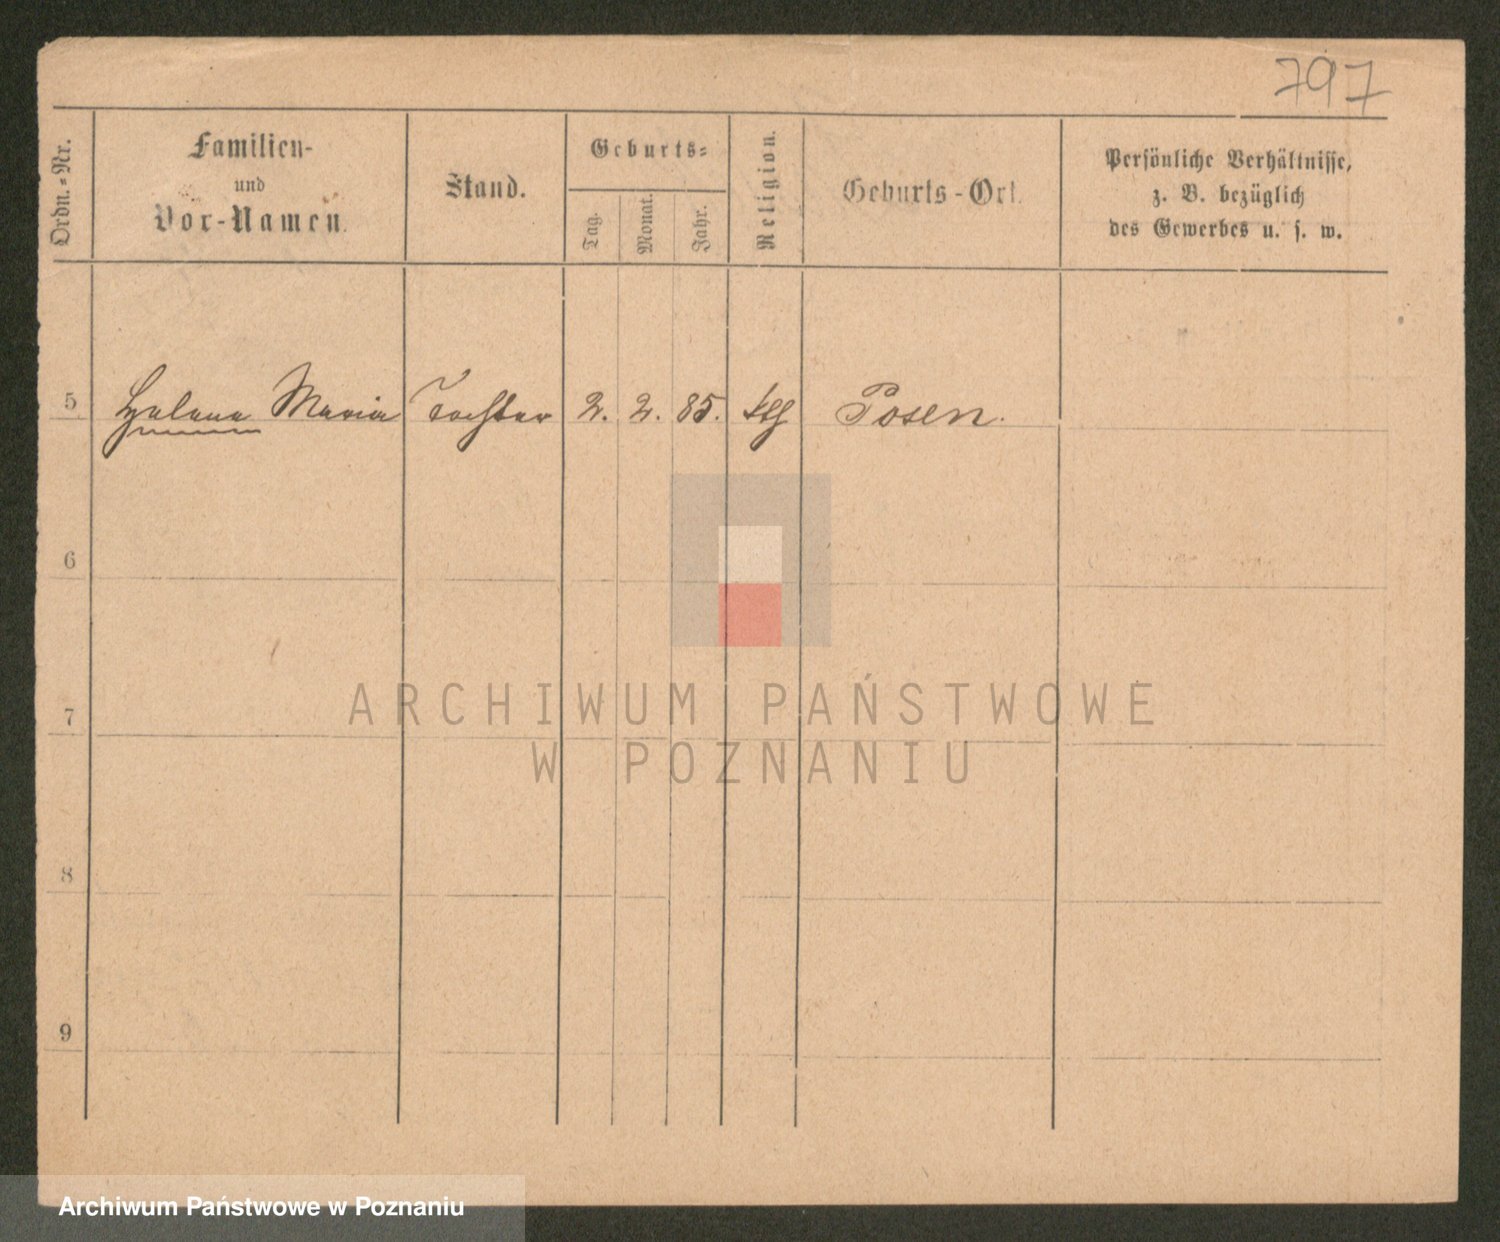 797
Ordn.-Nr.
Familien-
und
Vor-Namen.
Stand.
Geburts-
Tag.
Monat.
Jahr.
Religion.
Geburts-Ort.
Persönliche Verhältnisse,
z. B. bezüglich
des Gewerbes u. s. w.
5 Helena Maria Tochter 2. 2. 85. kth Posen.
6
7
8
9
ARCHIWUM PAŃSTWOWE
W POZNANIU
Archiwum Państwowe w Poznaniu